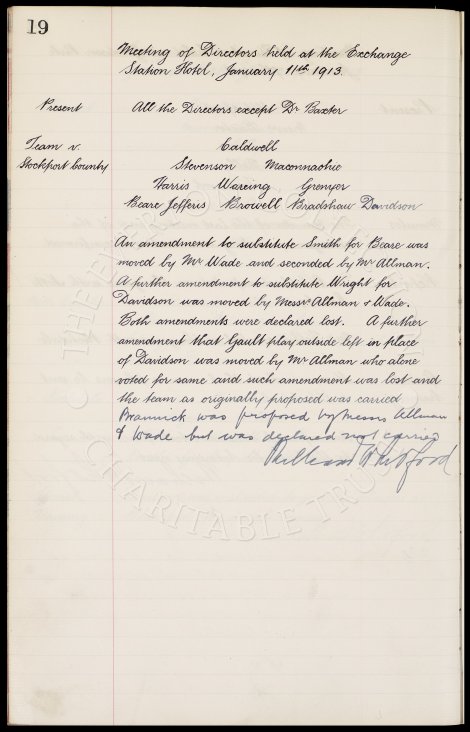 19
Meeting of Directors held at the Exchange
Station Hotel, January 11th 1913.
Present All the Directors except Dr Baxter
Team v. Stockport County
Caldwell
Stevenson Maconnachie
Harris Wareing Grenyer
Beare Jefferis Browell Bradshaw Davidson
An amendment to substitute Smith for Beare was
moved by Mr Wade and seconded by Mr Allman.
A further amendment to substitute Wright for
Davidson was moved by Messrs Allman & Wade.
Both amendments were declared lost. A further
amendment that Gault play outside left in place
of Davidson was moved by Mr Allman who alone
voted for same and such amendment was lost and
the team as originally proposed was carried
Brannick was proposed by Messrs Allman
& Wade but was declared not carried
THE EVERTON COLLECTION
CHARITABLE TRUST